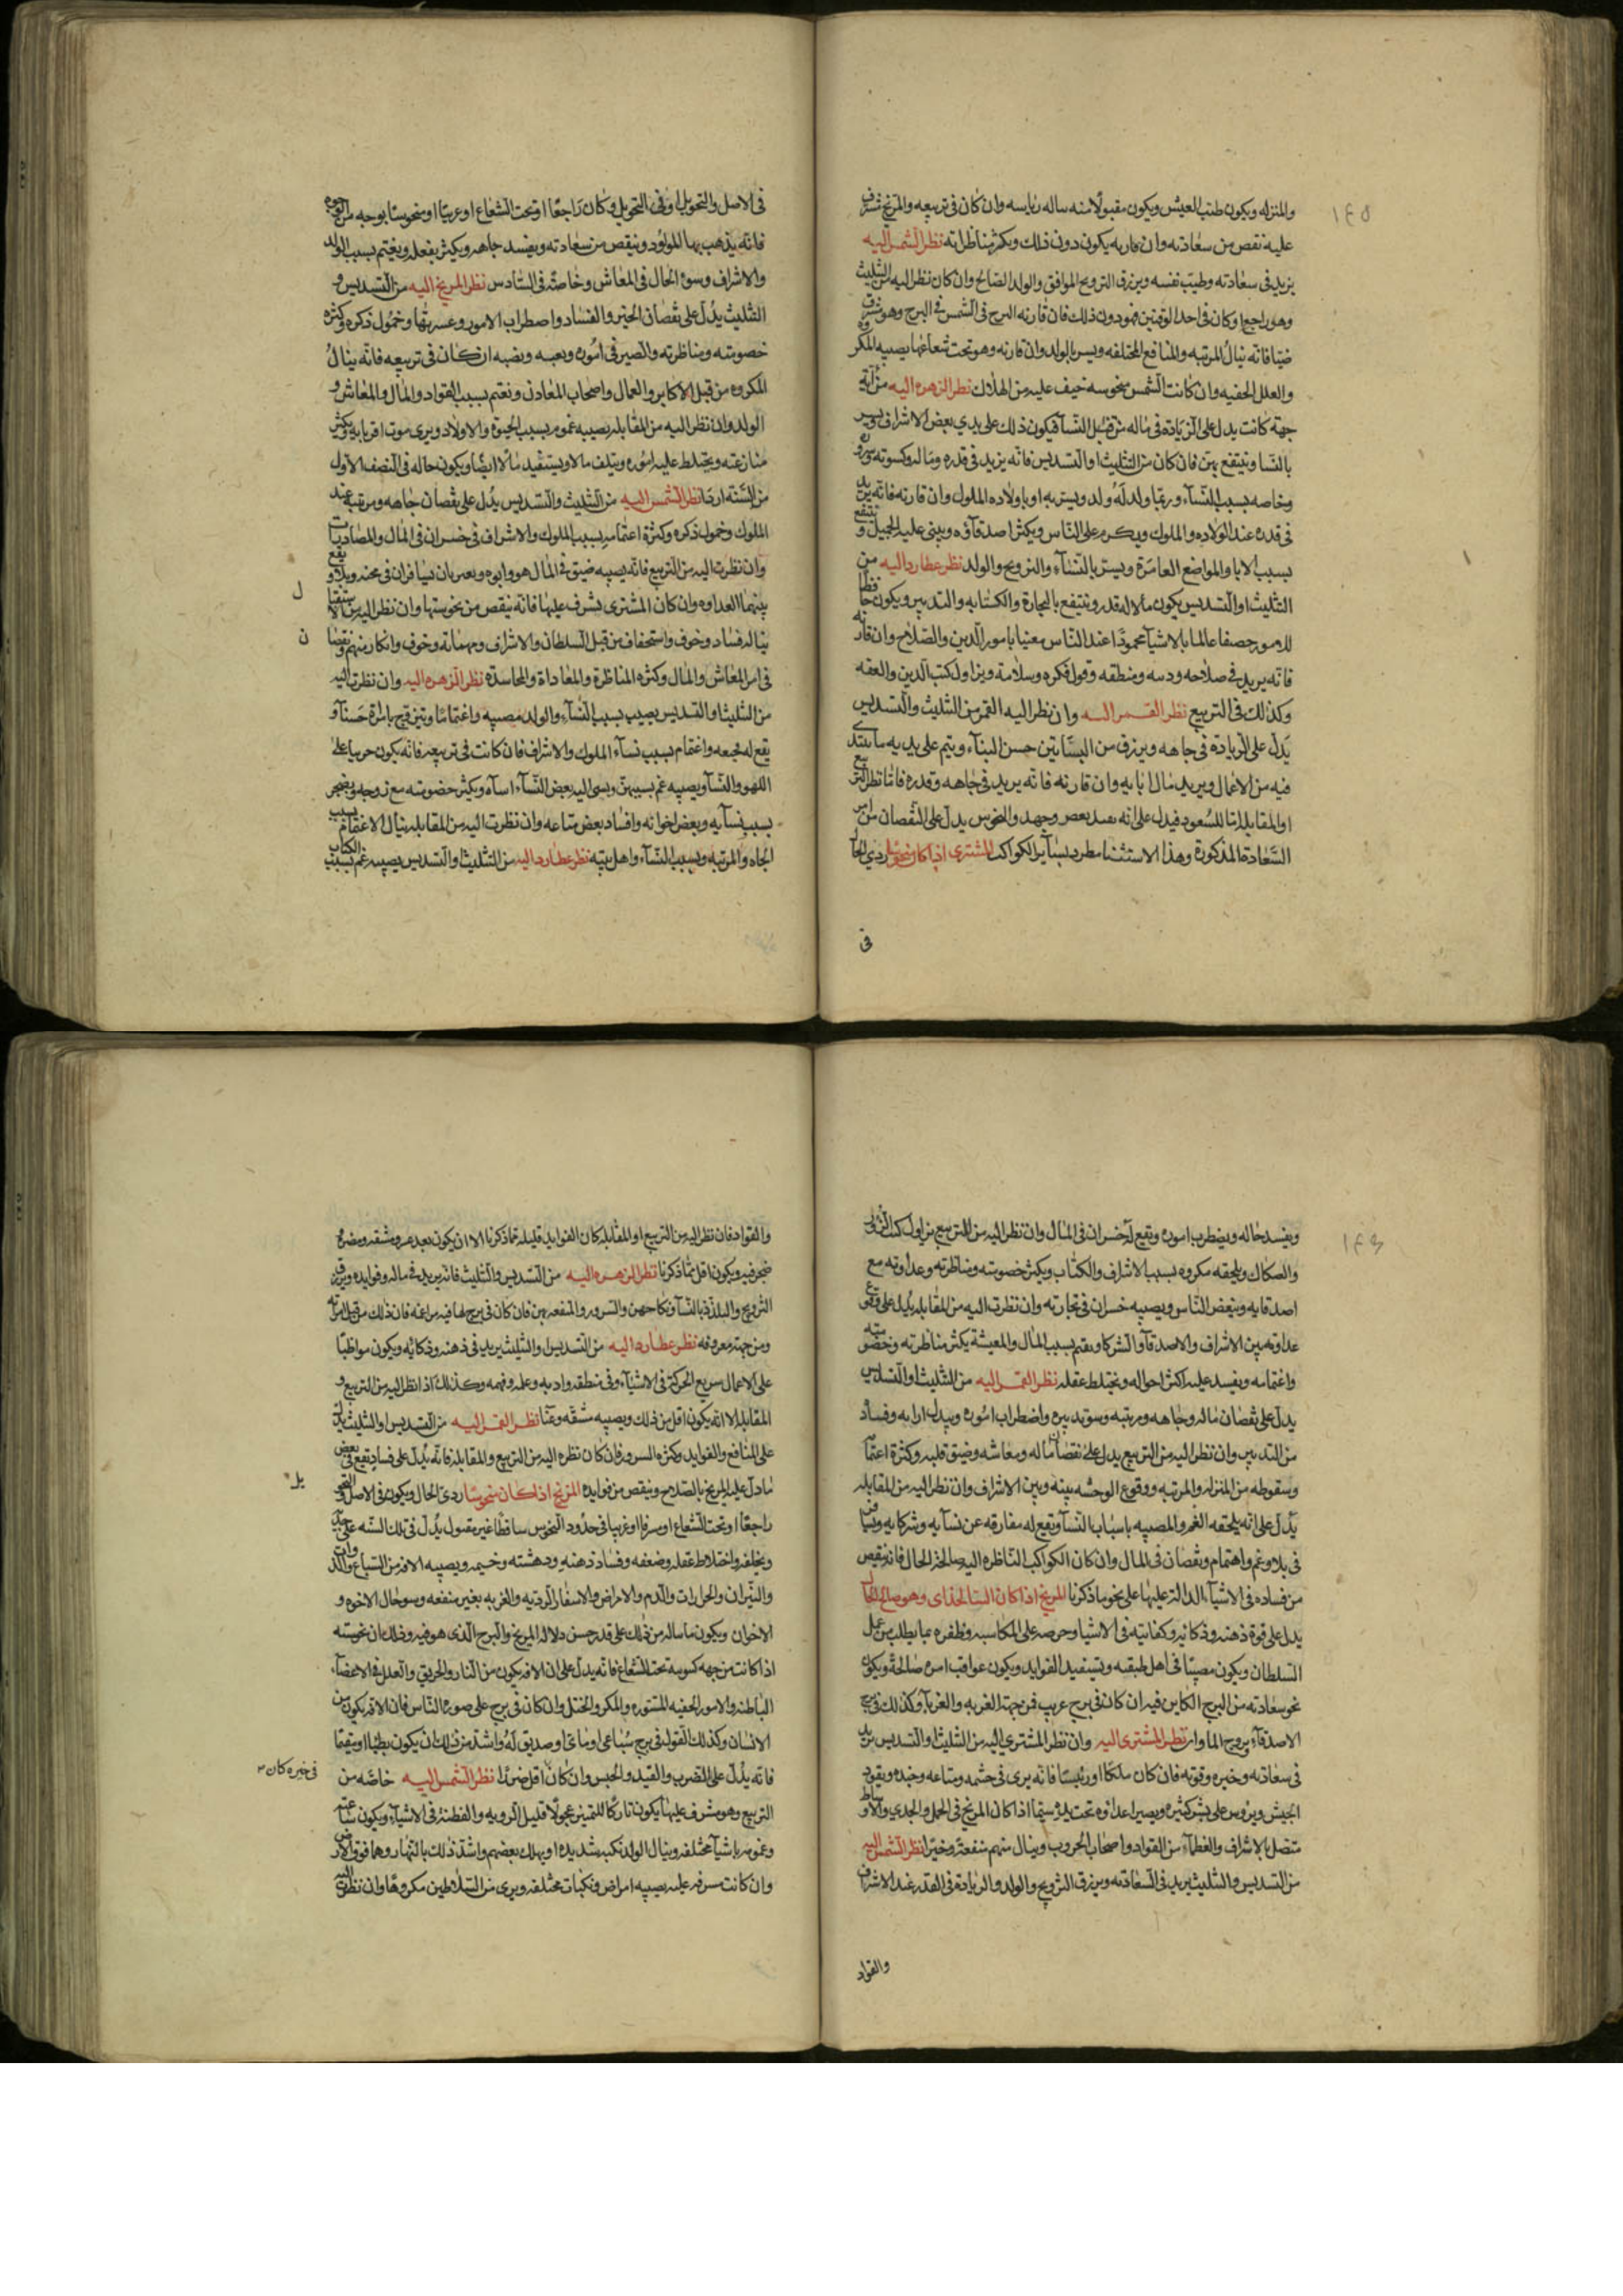 ١٤٥
والمنزله ويكون طيب العيش ويكون مقبولا منه ساله رياسه وان كان في تربيعه والمريخ مشرف
عليه نقص من سعادته وان قارنه يكون دون ذلك ويكثر مناظراته نظر الشمس اليه
يزيد في سعادته وطيب نفسه ويرزق الترويج الموافق والولد الصالح وان كان نظر اليه من التثليث
وهو راجع او كان في احد الوقتين فهو دون ذلك فان قارنه البرج في الشمس في البرج وهو مشرف
ضيا فانه ينال المرتبه والمنافع المختلفه ويسر بالولد وان قارنه وهو تحت شعاعها يصيبه المكر
والعلل الخفيه وان كانت الشمس منحوسه خيف عليه من الهلاك نظر الزهره اليه من اية
جهة كانت يدل على الزيادة في ماله من قبل النسآ فيكون ذلك على يدي بعض الاشراف ويسر
بالنسا وينتفع بهن فان كان من التثليث او التسديس فانه يزيد في قدره وماله وكسوته
وخاصه بسبب النسآء وربما ولد له ولد ويسر به او باولاده الملوك وان قارنه فانه يزيد
في قدره عند الولاده والملوك ويكرم على الناس ويكثر اصدقاؤه ويثنى عليه الجميل و ينتفع
بسبب الابا والمواضع العامرة ويسر بالنسآء والترويج والولد نظر عطارد اليه من
التثليث او التسديس يكون مالاله قدر وينتفع بالتجارة والكتابه والتدبير ويكون حافظا
للامور حصفا عالما بالاشيآ محمودا عند الناس معنيا بامور الدين والصلاح وان قارنه
فانه يزيد في صلاحه ودينه ومنطقه وقول فكره وسلامة ويزاول كتب الدين والعفه
وكذلك في التربيع نظر القمر اليه وان نظر اليه القمر من التثليث والتسديس
يدل على الزيادة في جاهه ويرزق من البساتين حسن البناء ويتم على يديه ما يبتدى
فيه من الاعمال ويزيد مال ابايه وان قارنه فانه يزيد في جاهه وقدره فاما نظر التربيع
او المقابله اما للسعود فيدل على انه وجهد والنحوس يدل على النقصان من امر
السعادة المذكورة وهذا الاستثنا مطرد بسآير الكواكب المشترى اذا كان منحوسا ردي الحال
في
في الاصل والتحويل او في التحويل وكان راجعا او تحت الشعاع او غربيا او منحوسا بوجه من الوجوه
فانه يذهب بهآ المولود وينقص من سعادته ويفسد جاهه ويكثر بفعله ويغتم بسبب الولد
والاشراف وسوء الحال في المعاش وخاصة في السادس نظر المريخ اليه من التسديس و
التثليث يدل على نقصان الخير والفساد واضطراب الامور وعسرتها وخمول ذكره وكثره
خصومته ومناظرته والصبر في اموره وتعبه ونصبه ان كان في تربيعه فانه ينال
المكروه من قبل الاكابر والعمال واصحاب المعادن ويغتم بسبب القواد والمال والمعاش و
الولد وان نظر اليه من المقابله يصيبه غموم بسبب الحيوة والاولاد ويرى موت اقربايه ويكثر
منازعته ويختلط عليه اموره ويتلف مالا ويستفيد مالا ايضا ويكون حاله في النصف الاول
من السنة ارجا نظر الشمس اليه من التثليث والتسديس يدل على نقصان جاهه ومرتبه عند
الملوك وخمول ذكره وكثرة اغتمامه بسبب الملوك والاشراف في خسران في المال والمصادرات
وان نظرت اليه من التربيع فانه يصيبه ضيق في المال هو وابوه ويعرض ان يسافران في محنه وبلاء ويقع
بينهما العداوه وان كان المشترى يشرف عليها فانه ينقص من نحوستها وان نظر اليه من الاستقبا
ل
يناله فساد وخوف واستخفاف من قبل السلطان والاشراف ومهماته وخوف وانكار منهم ونقصا
ن
في امر المعاش والمال وكثره المناظرة والمعاداة والمحاسدة نظر الزهره اليه وان نظرت اليه
من التثليث او التسديس يصيب بسبب النسآء والولد مصيبه واغتماما ويتزوج بامراة حسنآ و
يقع له فجيعه واغتمام بسبب نسآء الملوك والاشراف فان كانت في تربيعه فانه يكون حريصا على
اللهو والنسآ ويصيبه غم بسببهن ويسى اليه بعض النسآء اسآه ويكثر خصومته مع زوجه ويضجر
بسبب نسآيه وبعض اخوانه وافساد بعض متاعه وان نظرت اليه من المقابله ينال الاغتمام بسبب
الجاه والمرتبه وبسبب النسآء واهل بيته نظر عطارد اليه من التثليث او التسديس يصيبه غم بسبب الكتاب
١٤٦
ويفسد حاله ويضطرب اموره ويقع له خسران في المال وان نظر اليه من التربيع يزاول كتب
والصكاك ويلحقه مكروه بسبب الاشراف والكتاب ويكثر خصومته ومناظرته وعداوته مع
اصدقايه وبغض الناس ويصيبه خسران في تجارته وان نظرت اليه من المقابله يدل على وقوع
عداوته بين الاشراف والاصدقآ والشركا ويغتم بسبب المال والمعيشة يكثر مناظرته وخصومته
واغتمامه ويفسد عليه اكثر احواله ويختلط عقله نظر القمر اليه من التثليث او التسديس
يدل على نقصان ماله وجاهه ومرتبه وسوء تدبيره واضطراب اموره ويبدل ارايه وفساد
من التدبير وان نظر اليه من التربيع يدل على نقصان ماله ومعاشه وضيق قلبه وكثرة اغتما
وسقوطه من المنزله والمرتبه ووقوع الوحشه بينه وبين الاشراف وان نظر اليه من المقابله
يدل على انه يلحقه الغم والمصيبه باسباب النسآ ويقع له مفارقه عن نسآيه وشركايه
في بلاء وغم واهتمام ونقصان في المال وان كان الكواكب الناظره اليه صالحه الحال فانه ينقص
من فساده في الاشيآء الدالة عليها على نحو ما ذكرنا المريخ اذا كان السالخداى وهو صالح الحال
يدل على قوة ذهنه وذكائه وكفايته في الاشيا وحرصه على المكاسبه وظفره بما يطلب من عمل
السلطان ويكون مصيبا في اهل طبقته ويستفيد الفوايد ويكون عواقب امره صالحة ويكون
نحو سعادته من البرج الكاين فيه ان كان في برج غريب فمن جهة الغربه والغربآ وكذلك في برج
الاصدقآ نظر المشترى اليه وان نظر المشترى اليه من التثليث او التسديس يزيد
في سعادته وخيره وقوته فان كان ملكا او رئيسا فانه يرى في حشمه ومتاعه وجنده ويقود
الجيش ويروس على بشر كثيره ويصير اعداؤه تحت يده سيما اذا كان المريخ في الحمل والجدي والاوساط
متصل بالاشراف والعظمآء من القواد واصحاب الحروب وينال منهم منفعة وخيرا نظر الشمس اليه
من التسديس والتثليث يزيد في السعادته ويرزق الترويج والولد والزيادة في القدر عند الاشراف
والقواد
والقواد فان نظر اليه من التربيع او المقابله كان الفوايد قليله مما ذكرنا الا ان يكون بعد عسر ومشقه ومضرة
ضجر فيه ويكون اقل مما ذكرنا نظر الزهره اليه من التسديس والتثليث فانه يزيد في ماله وفوايده ويرزق
الترويج والتلذذ بالنسآ ونكاحهن والسرور والمنفعه بهن فان كان في برج لها فيه مزاعمه فان ذلك من قبل امراته
ومن جهة معروفه نظر عطارد اليه من التسديس او التثليث يزيد في ذهنه وذكائه ويكون مواظبا
على الاعمال سريع الحركة في الاشيآء وفي منطقه وادبه وعلمه وفهمه وكذلك اذا نظر اليه من التربيع و
المقابله الا انه يكون اقل من ذلك ويصيبه مشقه وعنا نظر القمر اليه من التسديس او التثليث يدل
على المنافع والفوايد وكثره السرور فان كان نظره اليه من التربيع والمقابله فانه يدل على فساد يقع في بعض
ما دل عليه المريخ بالصلاح وينقص من فوايده المريخ اذا كان منحوسا ردى الحال ويكون في الاصل والتحو
يل
راجعا او تحت الشعاع او غربيا في حدود النحوس ساقطا غير مقبول يدل في تلك السنه على
ويخلفه واختلاط عقله وضعفه وفساد ذهنه ودهشته ويصيبه الافه من السباع
والنيران والحرارات والدم والامراض والاسفار الرديه والغربه بغير منفعه وسو حال الاخوه و
الاخوان ويكون ما يناله من ذلك على قدر حسن دلالة المريخ والبرج الذى هو فيه وذلك ان نحوسته
اذا كانت من جهه كسوبه تحت الشعاع فانه يدل على ان الافه يكون من النار والحريق والعلل في الاعضآء
الباطنه والامور الخفيه المستوره والمكر والختل وان كان في برج على صورة الناس فان الافه يكون من
الانسان وكذلك القول في برج سباعى او مائى او صديق له واشد من ذلك ان يكون بطيئا او مقيما
فانه يدل على الضرب والقيد والحبس وان كان اقل ضررا نظر الشمس اليه خاصه من
في خيره كان
التربيع وهو مشرف عليها يكون تاركا للتمييز عجولا قليل الرويه والفطنه في الاشيآء ويكون
وغموم باشيآ مختلفه وينال الولد نكبه شديده او يهلك بعضهم واشد ذلك بالنهار وهما فوق الارض
وان كانت مشرفه عليه يصيبه امراض ونكبات مختلفه ويرى من السلاطين مكروها وان نظرت اليه